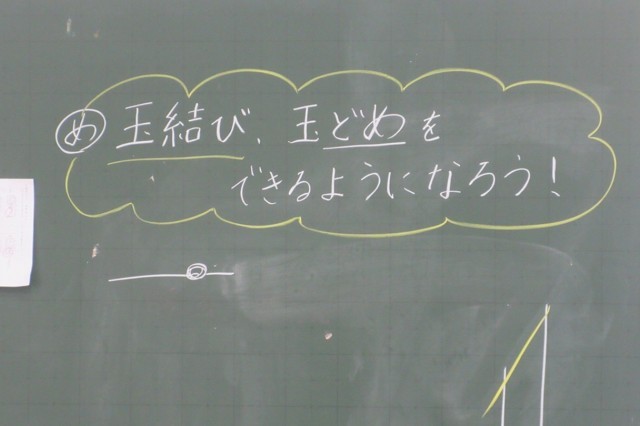 め 玉結び、玉どめを
できるようになろう!